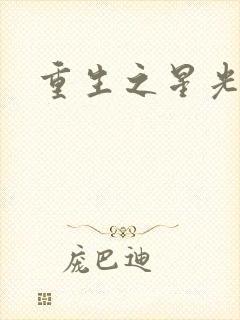 重生之星光
庞巴迪